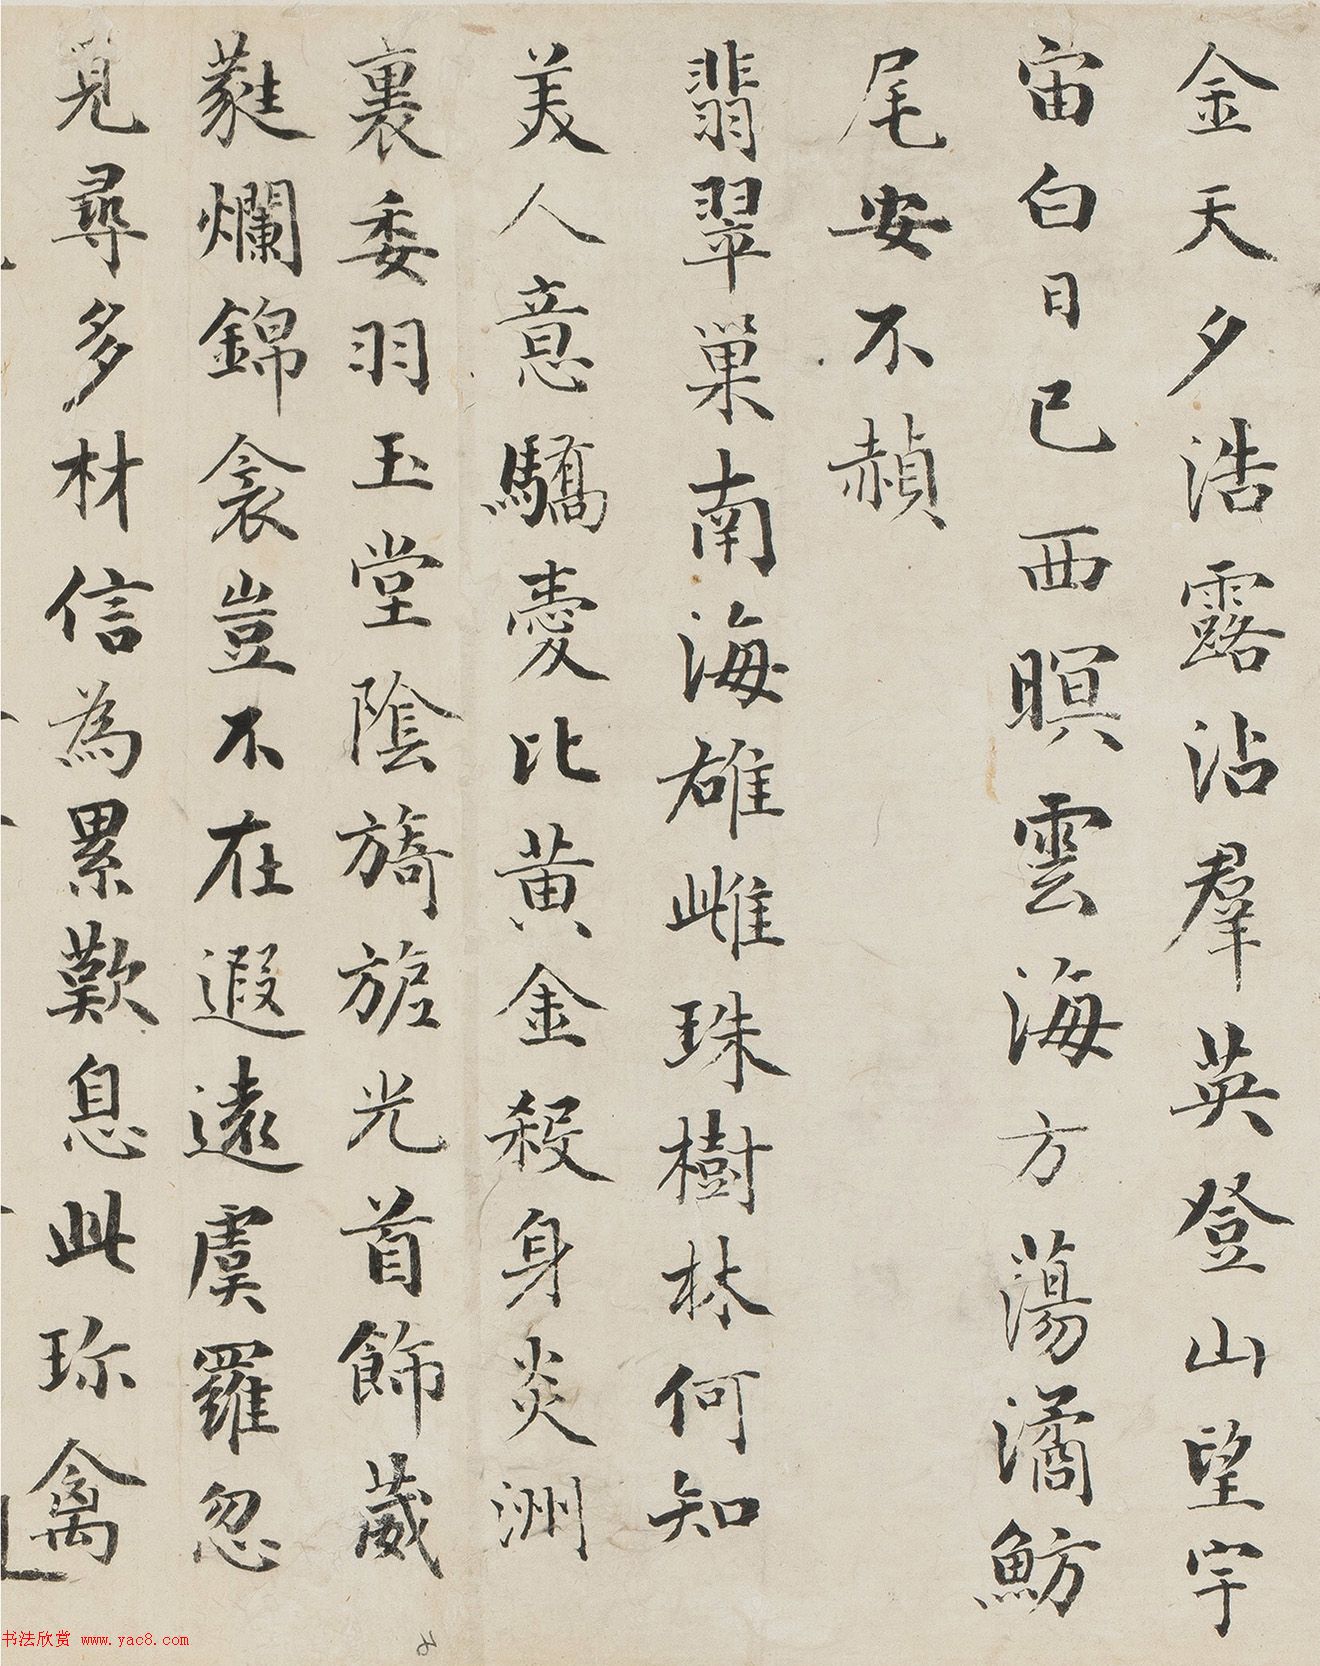 金天夕浩露沾羣英登山望宇
宙白日已西暝雲海方蕩潏魴
尾安不赬
翡翠巢南海雄雌珠樹林何知
美人意驕愛比黄金殺身炎洲
裏委羽玉堂陰旖旎光首飾葳
蕤爛錦衾豈不在遐遠虞羅忽
見尋多材信為累歎息此珎禽
书法欣赏 www.yac8.com